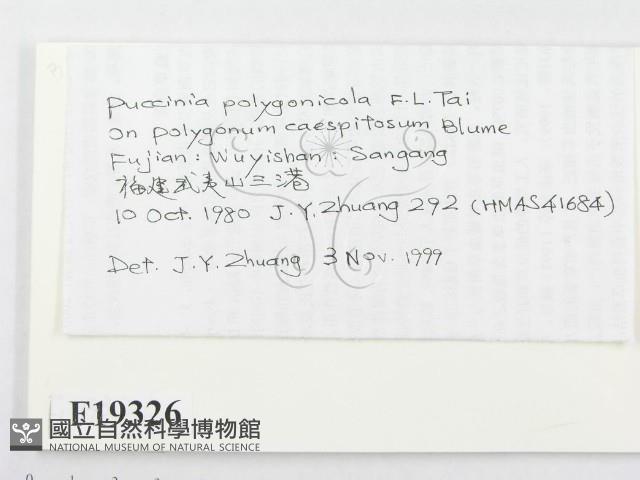 Puccinia polygonicola F.L.Tai
on polygonum caespitosum Blume
Fujian: Wuyishan: Sangang
福建武夷山三港
10 Oct. 1980 J.Y.Zhuang 292 (HMAS41684)
Det. J.Y.Zhuang 3 Nov. 1999
F19326
國立自然科學博物館
NATIONAL MUSEUM OF NATURAL SCIENCE